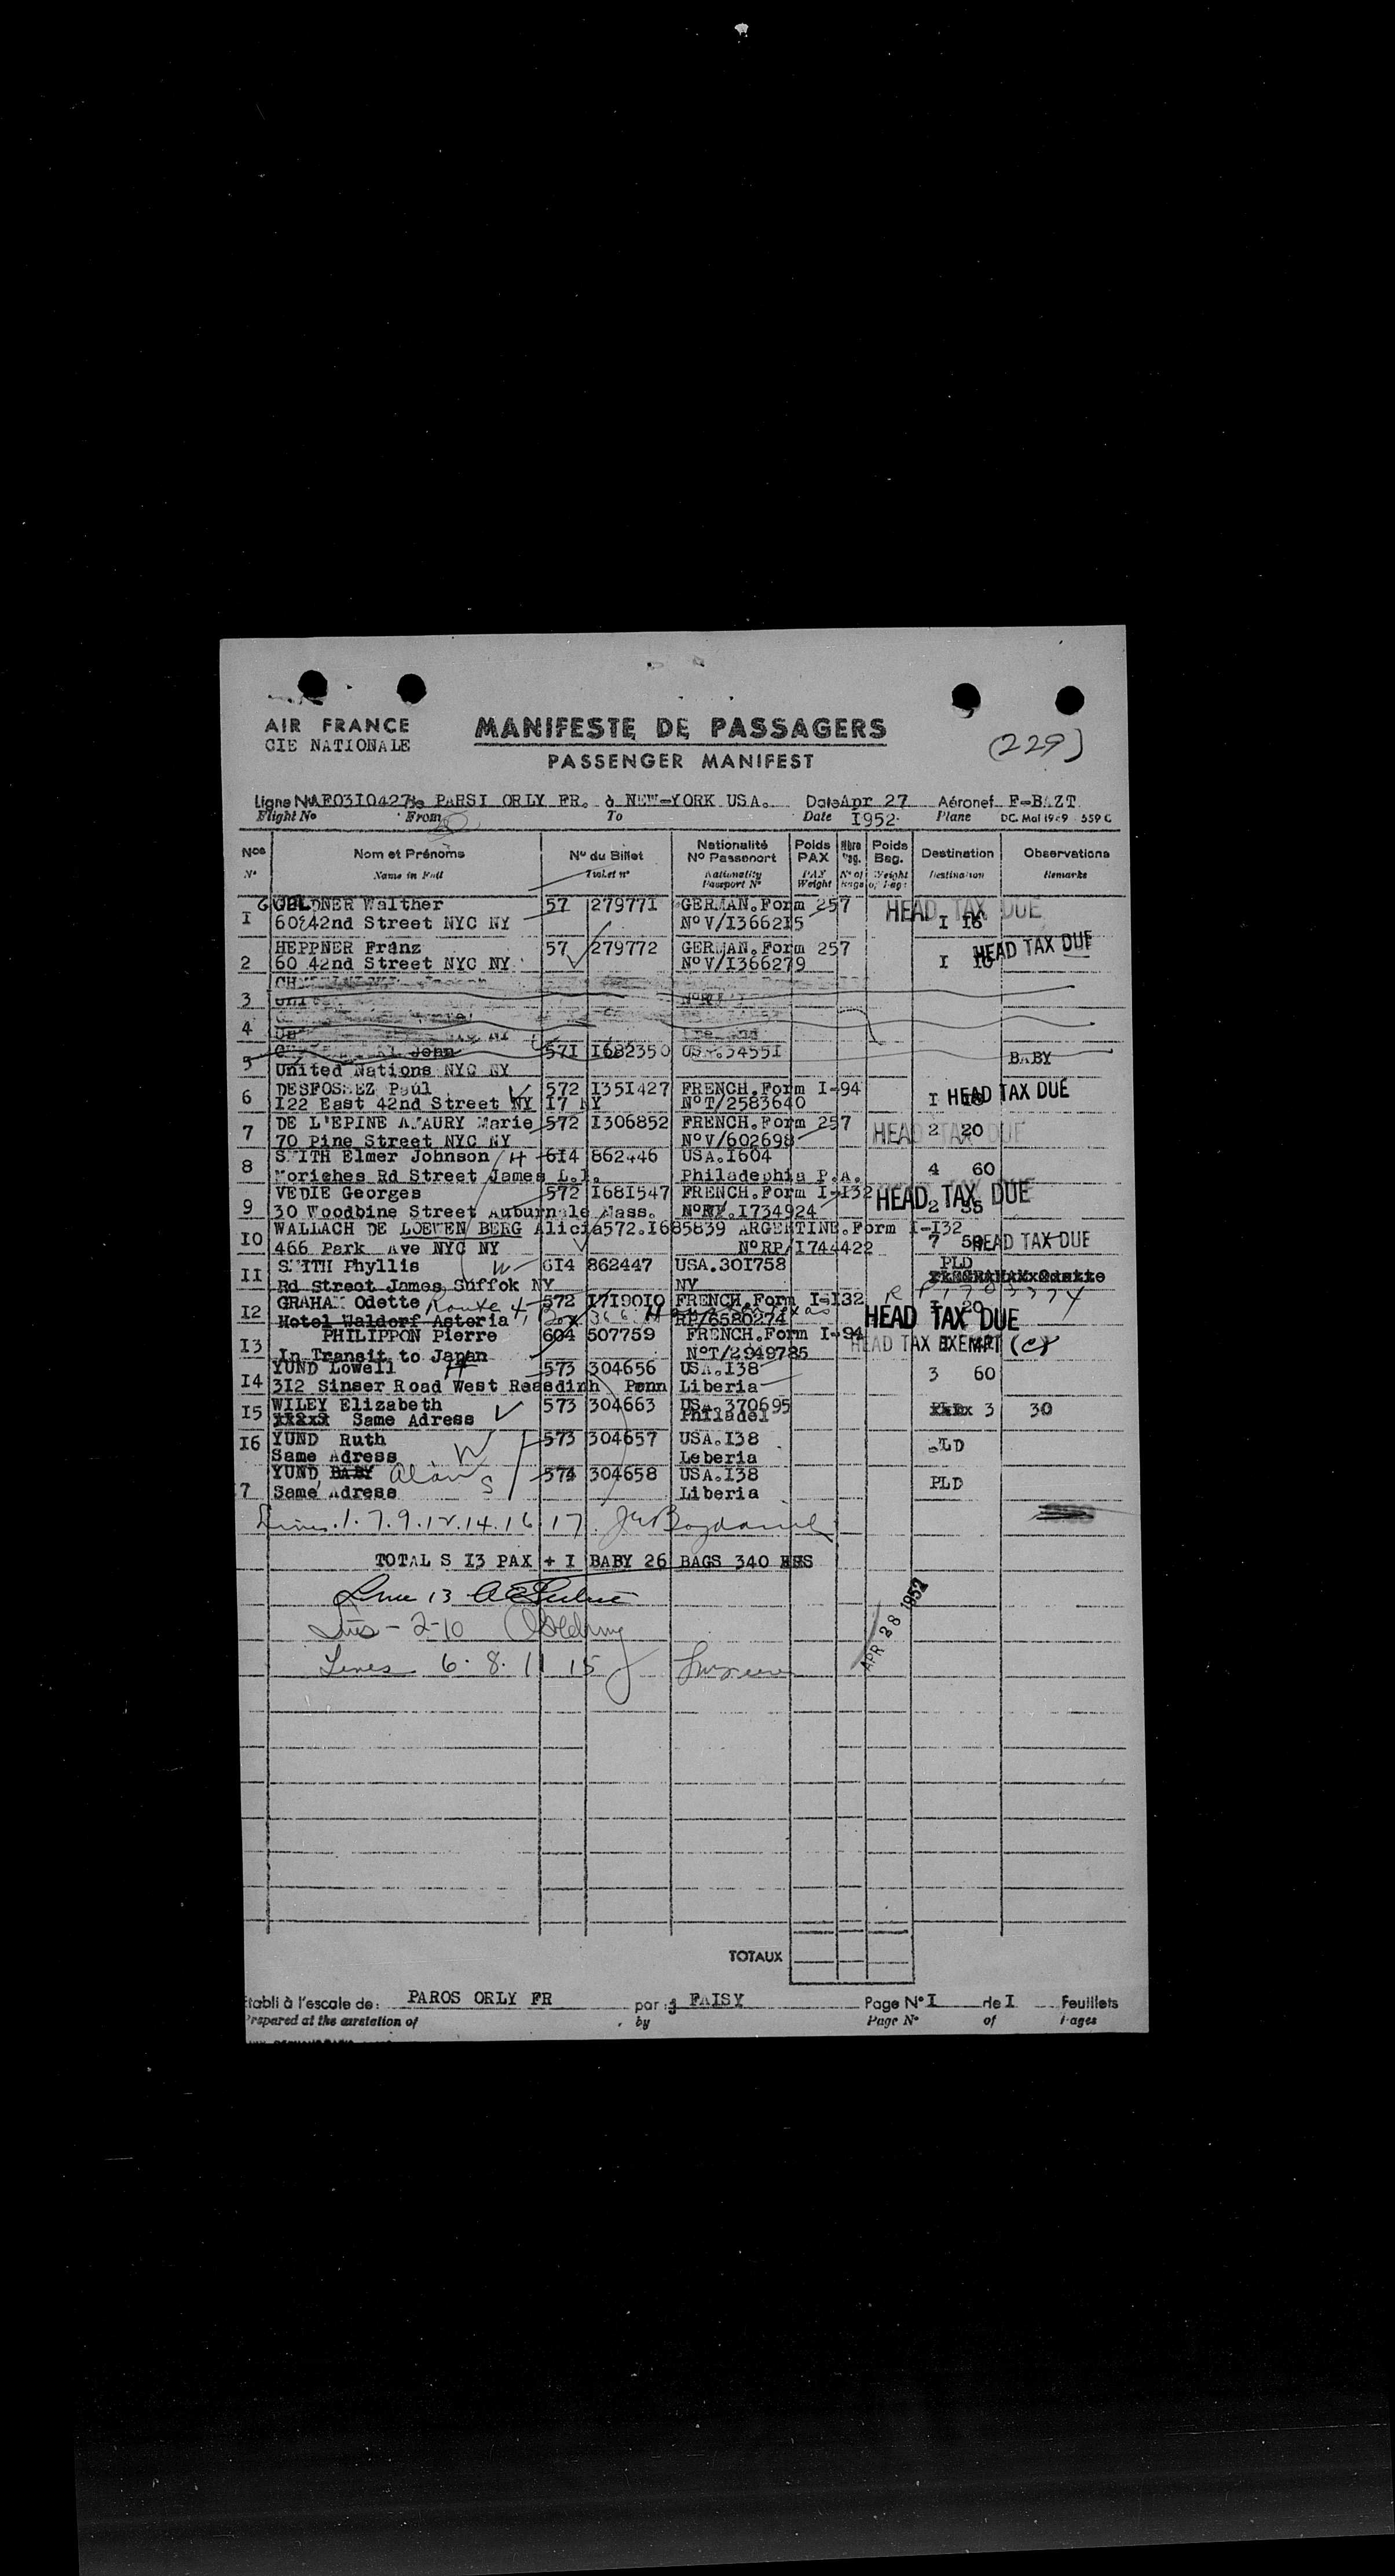 AIR FRANCE
CIE NATIONALE
MANIFESTE DE PASSAGERS
PASSENGER MANIFEST
(229)
Ligne N°AF03I0427 de PARSI ORLY FR. à NEW-YORK USA. Date Apr 27 Aéronef F-BAZT
Flight N° From To Date I952. Plane DC. Mai 1949 559 C
Nos Nom et Prénoms N° du Billet Nationalité N° Passeport Poids PAX Nbre Bag. Poids Bag. Destination Observations
N° Name in Full Ticket n° Nationality Passport N° PAX Weight N° of Bags Weight of Bags Destination Remarks
GELDNER Walther 57 27977I GERMAN.Form 257 HEAD TAX DUE
I 60 42nd Street NYC NY N°V/I3662I5 I I6
HEPPNER Franz 57 279772 GERMAN.Form 257 HEAD TAX DUE
2 60 42nd Street NYC NY N°V/I366279 I I6
3
4
5 John 57I I682350 USA.3455I BABY
United Nations NYC NY
DESFOSSEZ Paul 572 I35I427 FRENCH.Form I-94 HEAD TAX DUE
6 I22 East 42nd Street NY I7 NY N°T/2583640 I
DE L'EPINE AMAURY Marie 572 I306852 FRENCH.Form 257 HEAD TAX DUE
7 70 Pine Street NYC NY N°V/602698 2 20
SMITH Elmer Johnson H 6I4 862446 USA.I604
8 Moriches Rd Street James L.I. Philadephia P.A. 4 60
VEDIE Georges 572 I68I547 FRENCH.Form I-I32 HEAD TAX DUE
9 30 Woodbine Street Auburndale Mass. N°RP.I734924 2 35
WALLACH DE LOEWEN BERG Alicia 572.I685839 ARGENTINE.Form I-I32
I0 466 Park Ave NYC NY N°RP/I744422 7 HEAD TAX DUE
SMITH Phyllis W 6I4 862447 USA.30I758 PLD
II Rd Street James Suffok NY NY
GRAHAM Odette Route 4, Box 366 572 I7I90I0 FRENCH.Form I-I32 HEAD TAX DUE
I2 Hotel Waldorf Asteria RP/6580274 20
PHILIPPON Pierre 604 507759 FRENCH.Form I-94 HEAD TAX EXEMPT (c)
I3 In Transit to Japan N°T/2949785
YUND Lowell H 573 304656 USA.I38
I4 3I2 Sinser Road West Reasdinh Penn Liberia 3 60
WILEY Elizabeth 573 304663 USA 370695
I5 Same Adress Philadel 3 30
I6 YUND Ruth W 573 304657 USA.I38 PLD
Same Adress Leberia
YUND BABY Alan S 574 304658 USA.I38 PLD
7 Same Adress Liberia
Lines.1.7.9.12.14.16.17.
TOTAL S I3 PAX + I BABY 26 BAGS 340 HHS
Line 13
APR 28 1952
Lines - 2-10
Lines 6.8.11 15
TOTAUX
Etabli à l'escale de: PAROS ORLY FR par: FAISY Page N° I de I Feuillets
Prepared at the airstation of by Page N° of Pages